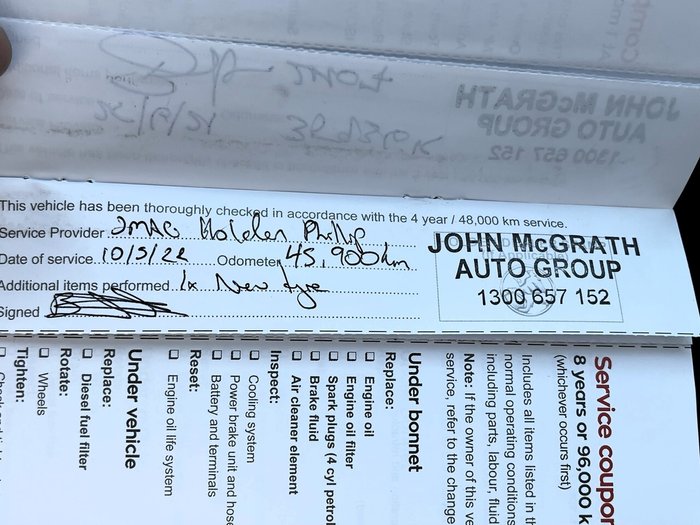 This vehicle has been thoroughly checked in accordance with the 4 year / 48,000 km service.
Service Provider JMAG Holden Phillip
Date of service 10/5/22 Odometer 45,900km
Additional items performed 1x New tyre
Signed
JOHN McGRATH
AUTO GROUP
1300 657 152
Service coupon
8 years or 96,000 k
(whichever occurs first)
Includes all items listed in t
normal operating condition
including parts, labour, fluid
Note: If the owner of this ve
service, refer to the change
Under bonnet
Replace:
Engine oil
Engine oil filter
Spark plugs (4 cyl petrol
Brake fluid
Air cleaner element
Inspect:
Cooling system
Power brake unit and hose
Battery and terminals
Reset:
Engine oil life system
Under vehicle
Replace:
Diesel fuel filter
Rotate:
Wheels
Tighten:
JOHN McGRATH
AUTO GROUP
1300 657 152